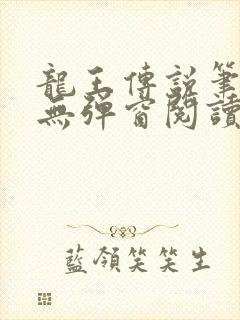 龍王傳說筆
無彈窗閱讀
藍領笑笑生